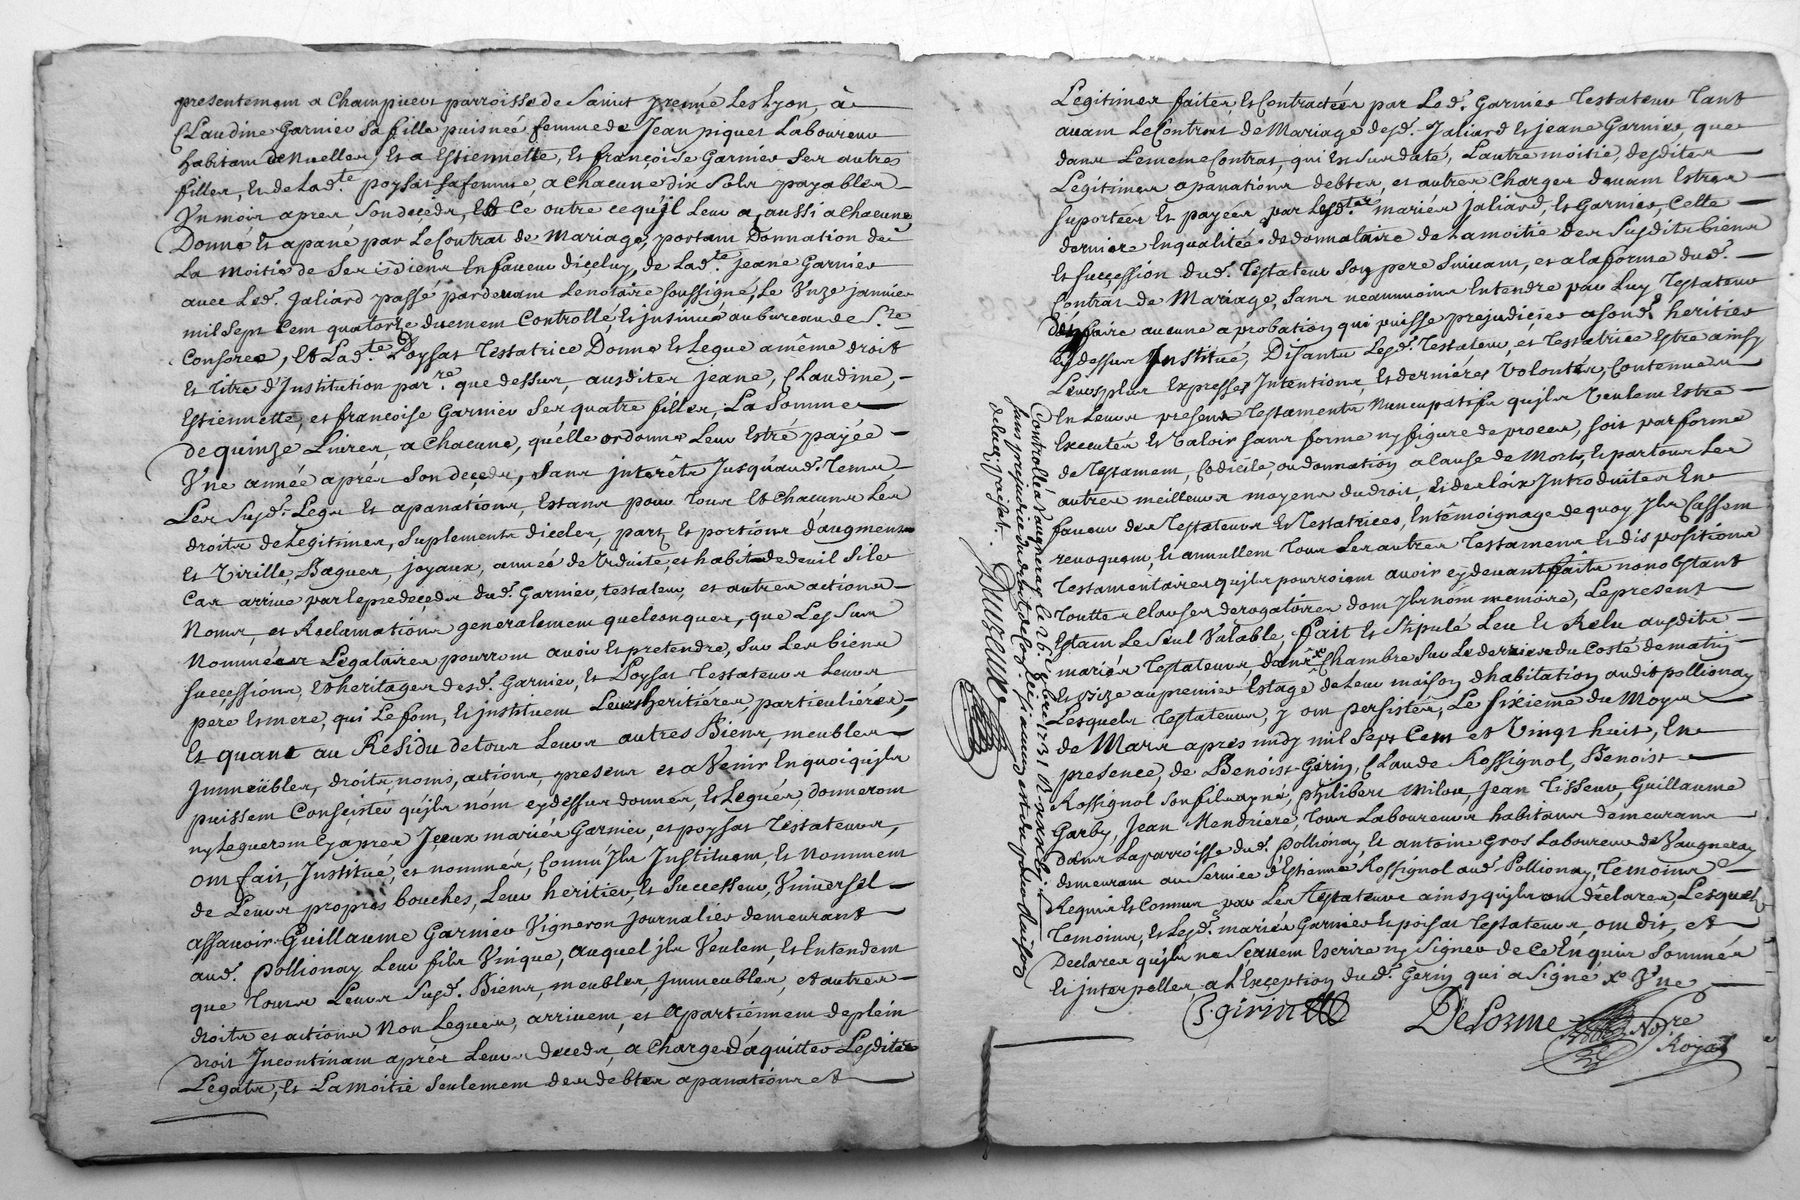 presentemam a Champuiers parroisse de Saint prenné Les Lyon, à
Claudine Garnier sa fille puisnée femme de Jean piquet Laboureur
habitam de Nuelles, Et a Estiennette, Et françoise Garnier ses autres
filles, Et de Lad.te poysat sa femme, a chacune dix sols payables
Un mois apres son decéds, Et Ce outre ce qu'jl Leur a, aussi a chacune
Donné Et apané par Le Contrat de Mariage, portam Donnation de
La moitié de ses isdiens En faveur d'jceluy, de Lad.te Jeane Garnier
avec Led. Jaliard passé pardevam Le notaire soussigné, Le Unze janvier
mil sept Cem quatorze duemem Controllé, Et jnsinué au bureau de S.te
Consorce, Et Lad.te Poysat Testatrice Donne Et Legue a même droit
Et titre d'Jnstitution par.re que dessus, ausdites Jeane, Claudine,
Estiennette, et francoise Garnier ses quatre filles, La Somme
de quinze Livres, a Chacune, qu'elle ordonne Leur Estre payée
Une année après son deceds, sans jnterêts Jusqu'aud. tems
Les susd. Legs Et apanations, Estans pour tous Et chacuns Les
droits de Legitimes, suplements d'jceles, part, Et portions d'augment
Et Virille, Bagues, joyaux, année de Viduité, et habits de deüil si le
Cas arrive par le predeceds dud. Garnier, testateur, et autres actions
Noms, et Reclamations generalement quelconques, que Les sus
Nommées Legataires pourrom avoir Et pretendre, sur Les biens
successions, Et heritages desd. Garnier, Et Poysat Testateurs Leurs
pere Et mere, qui Le font, Et jnstituem Leurs heritiéres, particuliéres,
Et quant au Résidu de tous Leurs autres Biens, meubles
Jmmeübles, droits, noms, actions, presens et a Venir En quoi qu'jls
puissem Consister qu'jls nom cy dessus donnés, Et Legués, donnerom
ny Leguerom Cy aprés Jceux mariés Garnier, et poysat Testateurs,
Om fait, Jnstitué, et nommé, Comm'Jls Jnstituem, Et Nommem
de Leurs propres bouches, Leur heritier, Et Successeur, Universel
assavoir Guillaume Garnier Vigneron journalier demeurant
aud. Pollionay Leur fils Unique, auquel jls Veulem, Et Entendem
que tous Leurs Susd. Biens, meubles, jmmeubles, et autres
droits et actions Non Legués, arrivem, et apartiennem de plein
droit Jncontinam aprés Leurs decéds, a charge d'aquitter Lesdits
Legats, Et La moitié seulemem des debtes apanations Et
Legitimes faites Et Contractées par Led. Garnier Testateur Tant
avam Le Contrat de Mariage desd. Jaliard Et jeane Garnier, que
dans Le meme Contrat, qui Est susdaté, L'autre moitié, desdites
Legitimes apanations debtes, et autres Charges devam Estre
suportées Et payées par Lesd.tes mariés Jaliard, Et Garnier, Celle
derniere En qualitée de donnataire de La moitié des Susdits biens
Et succession dud. Testateur Son pere Suivam, et a la forme dud.
Contrat de Mariage, sans neammoins Entendre par Luy Testateur
faire aucune aprobation qui puisse prejudicier a sond. héritier
Cy dessus Jnstitué, Disants Lesd. Testateur, et Testatrice Estre ainsy
Leurs plus Expresses Jntentions, Et derniéres Volontés, Contenues
En Leurs presens Testaments Nuncupatifs qu'jls Veulem Estre
Executés Et Valoir sans forme ny figure de procés, soit par forme
de Testament, Codicile, ou donnation a Cause de Mort, Et par tous Les
autres meilleurs moyens du droit, Et des loix Jntroduites En
faveur des Testateurs Et Testatrices, En têmoignage de quoy Jls Cassem
revoquem, Et annullem Tous Les autres Testamens Et dispositions
Testamentaires qu'jls pourroiem avoir cy devant faits nonobstant
toutte clauses derogatoires dom Jls nom memoire, Le present
Estam Le Seul Valable, fait Et Stipulé Leu Et Relu ausdits
mariés Testateurs dans x.e Chambre sur Le derriere du Costé de matin
Et Bize au premier Estage de Leur maison d'habitation audit pollionay
Lesquels Testateurs, y om persistés, Le sixieme du Moys
de Mars aprés midy mil Sept Cem et Vingt huit, En
presence, de Benoist Gerin, Claude Rossignol, Benoist
Rossignol son fils ayné, philibert Milou, Jean Tisseur, Guillaume
Garby, Jean Mendriere, tous Laboureurs habitans demeurans
Dans La parroisse dud. Pollionay, Et antoine Gros Laboureur de Vaugneray
demeuram au Service d'Etienne Rossignol aud. Pollionay, Temoins
Requis Et Connus par Les Testateurs ainsy qu'jls om déclarés, Lesquels
Temoins, Et Lesd. mariés Garnier Et poisat Testateurs, om dit, et
Declarer qu'jls ne sçavem Escrire ny signer de ce Enquis sommés
Et jnterpellés, a l'Exception dud. Gerin qui a signé x.e Une
C. girin
DeLorme No.re
Royal
Controllé a Vaugneray le 26.e
sans prejudice du droit
Duzeune